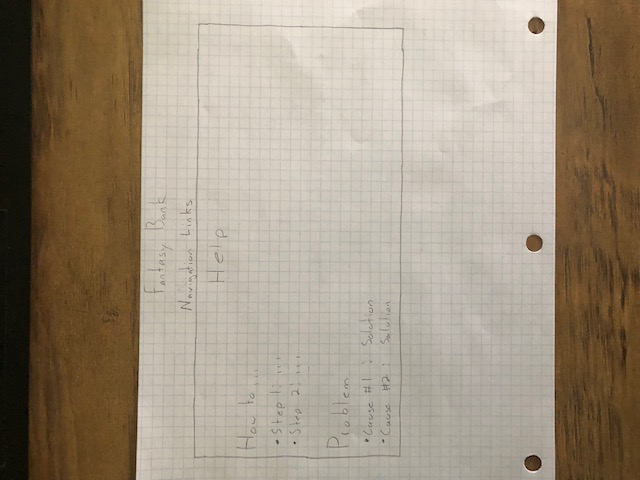 Fantasy Bank
Navigation Links
Help
How to...
• Step 1: ...
• Step 2: ...
Problem
• Cause #1 : Solution
• Cause #2 : Solution